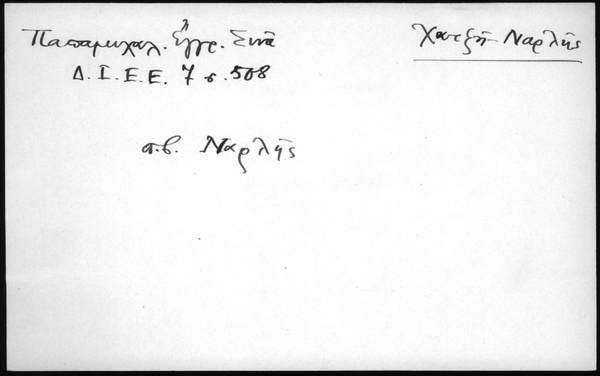 Παπαμιχαλ. Ἔγγρ. Σινᾶ
Χατζῆ-Ναρλῆς
Δ.Ι.Ε.Ε. 7 σ. 508
σ.β. Ναρλῆς